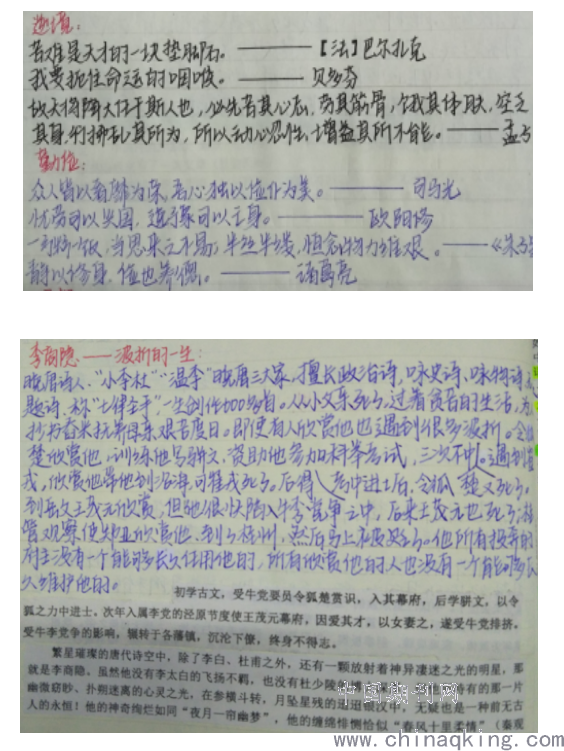 逆境:
苦难是天才的一块垫脚石。——【法】巴尔扎克
我要扼住命运的咽喉。——贝多芬
故天将降大任于斯人也，必先苦其心志，劳其筋骨，饿其体肤，空乏
其身，行拂乱其所为，所以动心忍性，增益其所不能。——孟子
勤俭:
众人皆以奢靡为荣，吾心独以俭朴为美。——司马光
忧劳可以兴国，逸豫可以亡身。——欧阳修
一粥一饭，当思来之不易；半丝半缕，恒念物力维艰。——《朱子
静以修身，俭以养德。——诸葛亮
李商隐——波折的一生:
晚唐诗人，"小李杜""温李"晚唐三大家，擅长政治诗，咏史诗、咏物诗
题诗，称"七律圣手"，一生创作600多首。从小父亲死了，过着贫苦的生活，为
抄书舂米抚养母亲艰苦度日。即使有人欣赏他也遭到很多波折。令狐
楚欣赏他，训练他写骈文，资助他参加科举考试，三次不中。遇到崔
戎，欣赏他带他到治海可惜戎死了。后得考中进士后，令狐楚又死了。
到岳父王茂元欣赏，但他很快陷入牛李党争之中，后来王茂元也死了，
管观察使郑亚欣赏他，到了桂州，然后马上被贬了。他所有投奔的
府主没有一个能够长久任用他的，所有欣赏他的人也没有一个能够长
久维护他的。
初学古文，受牛党要员令狐楚赏识，入其幕府，后学骈文，以令
狐之力中进士。次年入属李党的泾原节度使王茂元幕府，因爱其才，以女妻之，遂受牛党排挤。
受牛李党争的影响，辗转于各藩镇，沉沦下僚，终身不得志。
繁星璀璨的唐代诗空中，除了李白、杜甫之外，还有一颗放射着神异凄迷之光的明星，那
就是李商隐。虽然他没有李太白的飞扬不羁，也没有杜少陵
幽微窈眇、扑朔迷离的心灵之光，在参横斗转，月坠星残的迢迢银汉中，无疑也是一种前无古
人的永恒！他的神奇绚烂如同"夜月一帘幽梦"，他的缠绵悱恻恰似"春风十里柔情"（秦观
中国期刊网
www.chinaqking.com